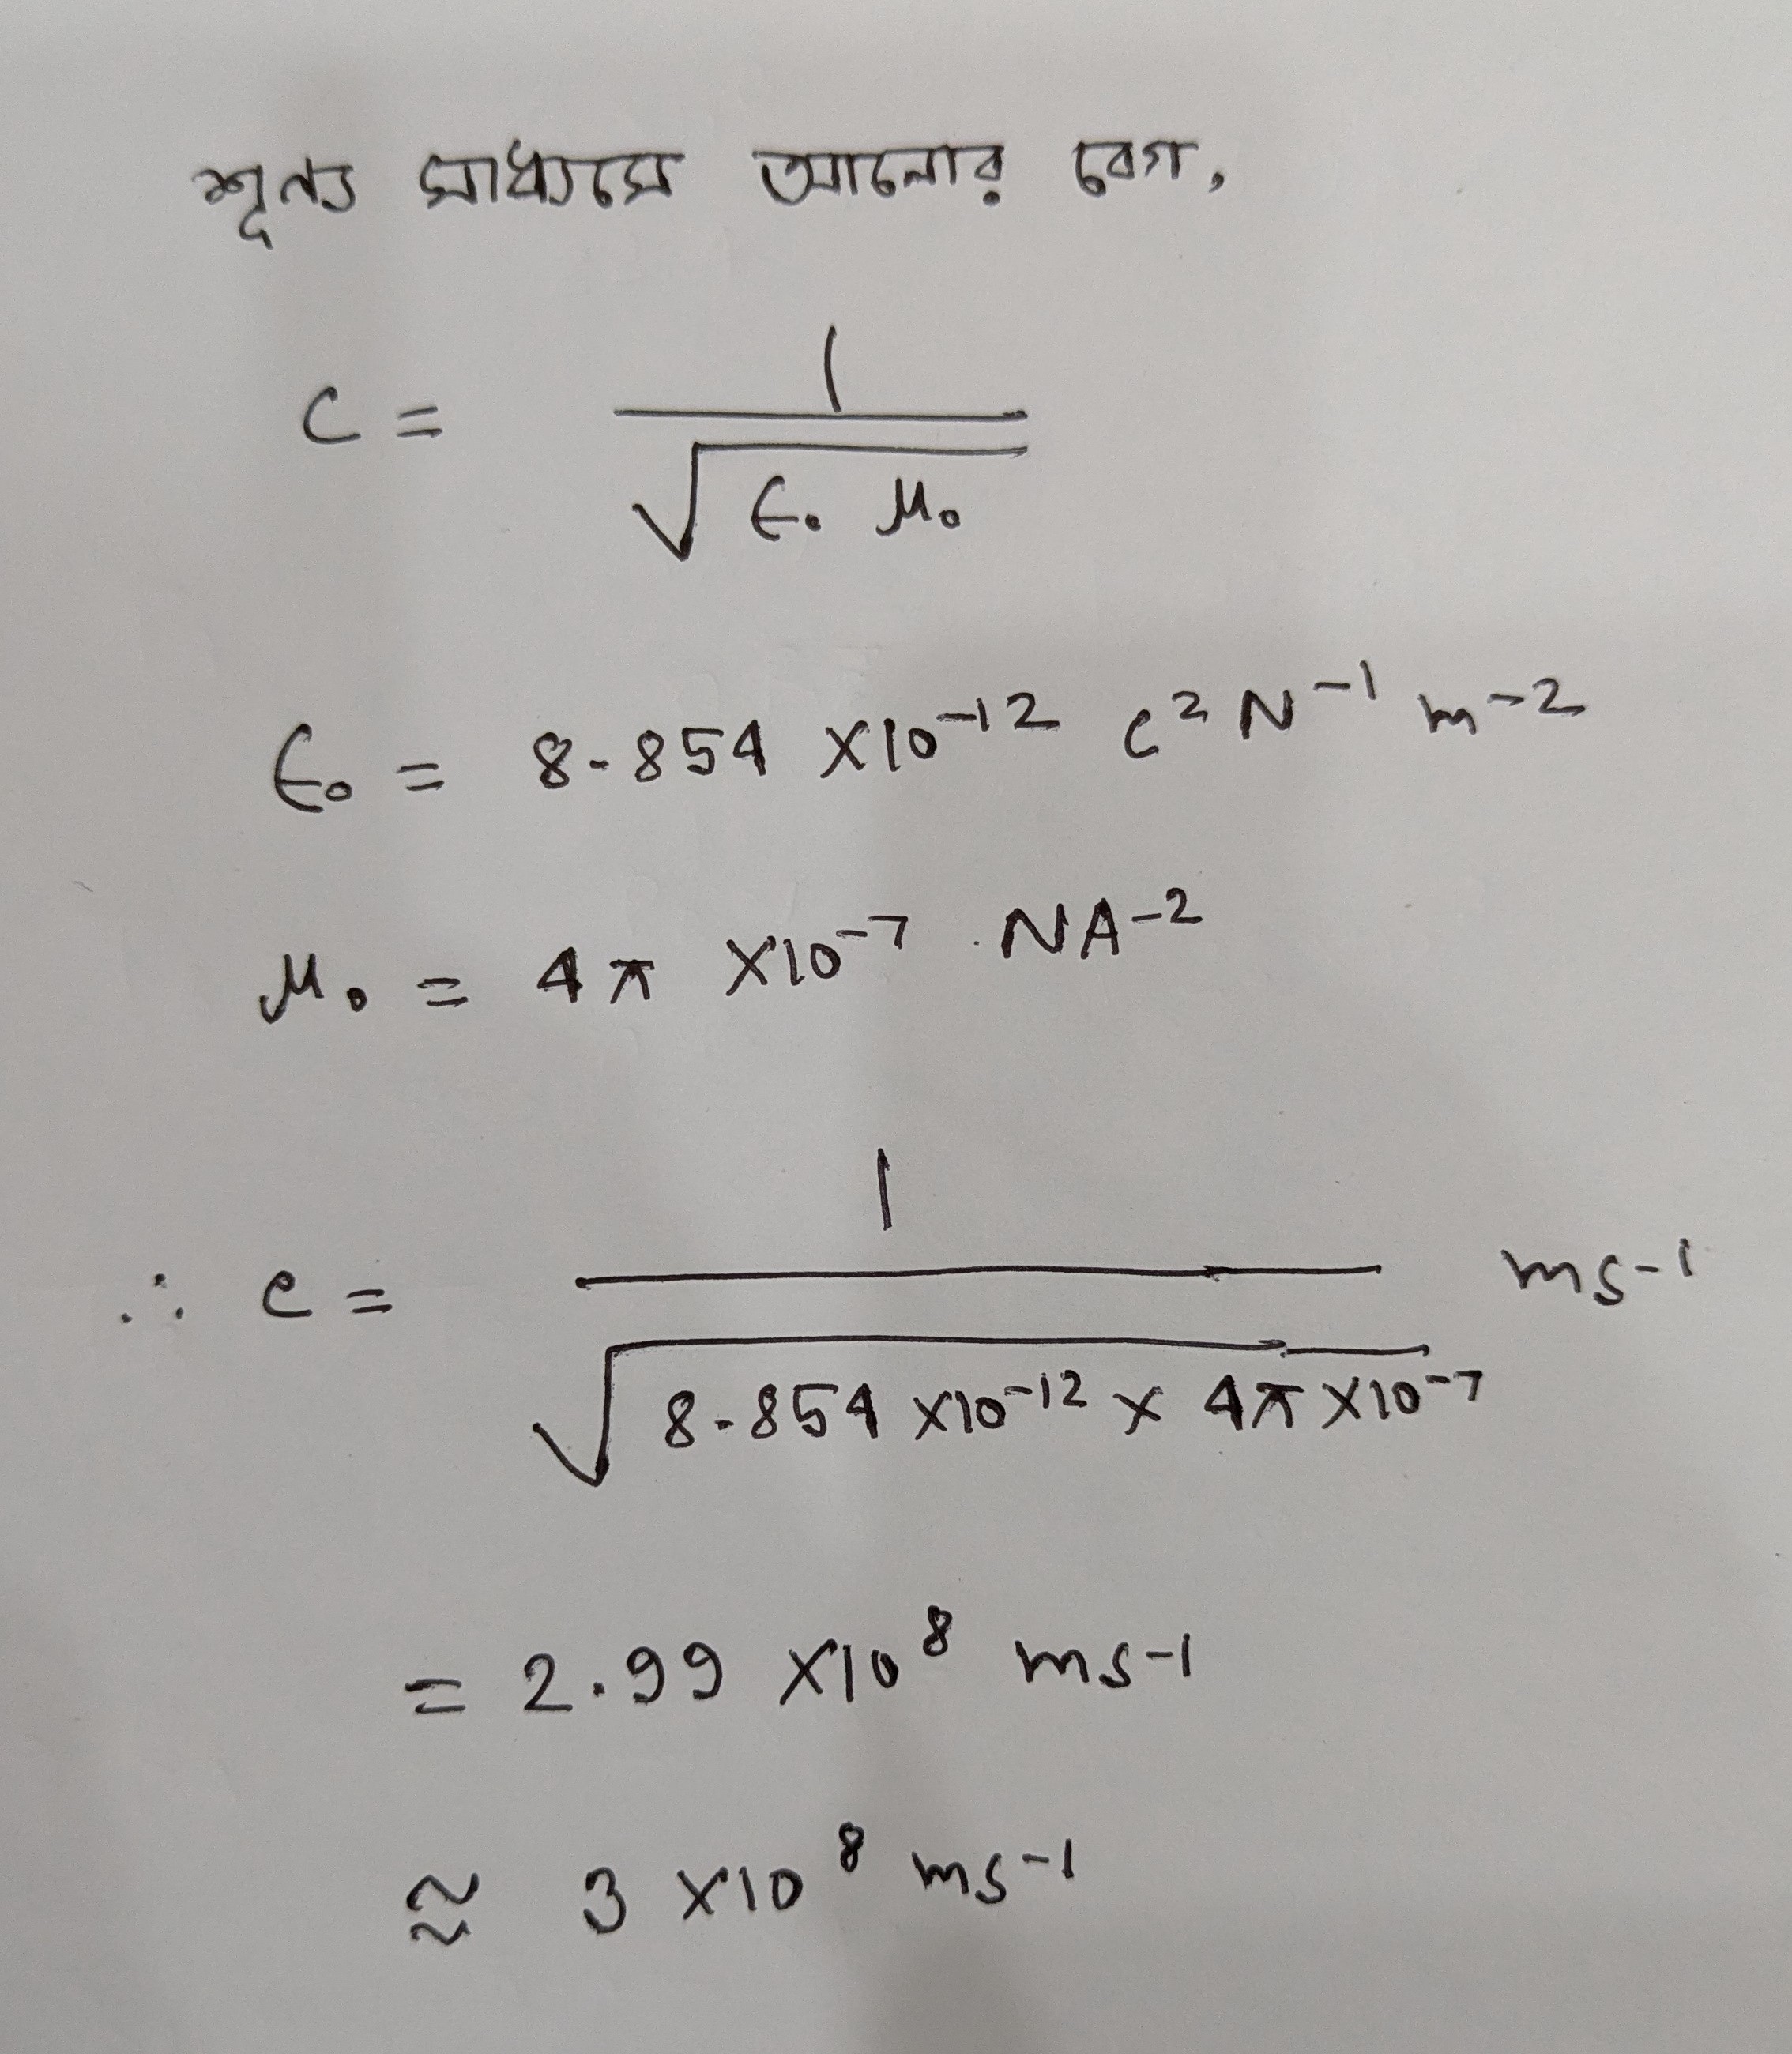 শূন্য মাধ্যমে আলোর বেগ,
C = 1 / √(ϵ₀ μ₀)
ϵ₀ = 8.854 ×10⁻¹² C² N⁻¹ m⁻²
μ₀ = 4π ×10⁻⁷ NA⁻²
∴ C = 1 / √(8.854 ×10⁻¹² × 4π ×10⁻⁷) ms⁻¹
= 2.99 ×10⁸ ms⁻¹
≅ 3 ×10⁸ ms⁻¹